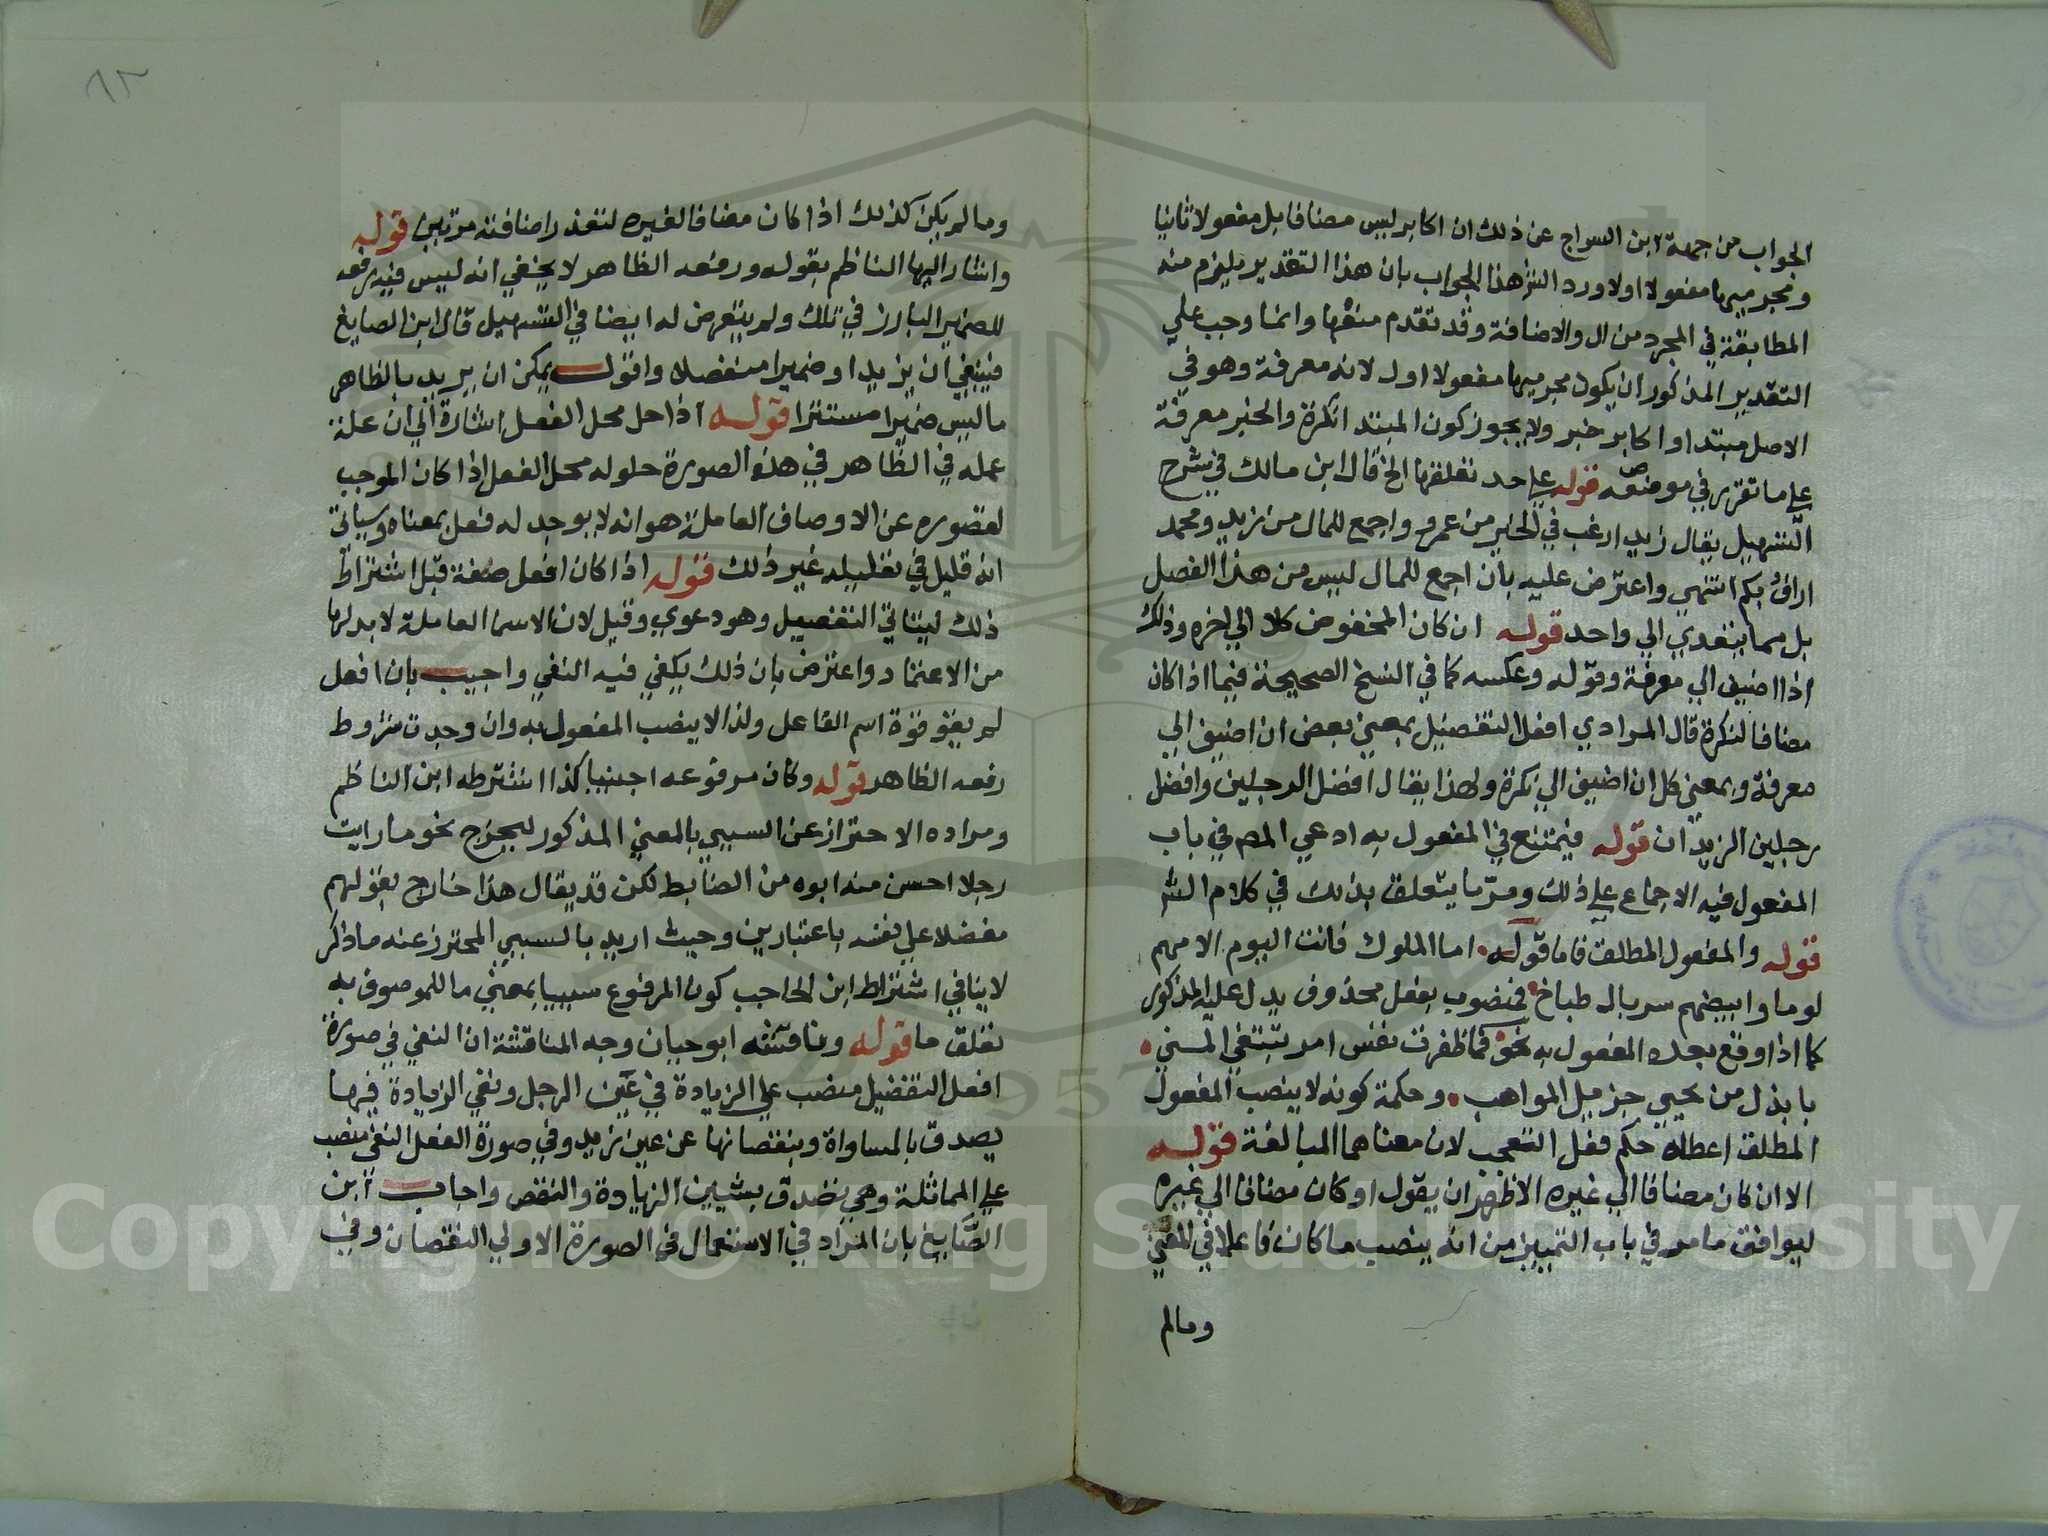 الجواب من جهة ابن السراج عن ذلك ان اكابر ليس مضافا بل مفعولا ثانيا
ومجرميها مفعولا اولا ورد الشر هذا الجواب بان هذا التقدير يلزم منه
المطابقة في المجرد من ال والاضافة وقد تقدم منعها وانما وجب علي
التقدير المذكور ان يكون مجرميها مفعولا اول لانه معرفة وهو في
الاصل مبتدا واكابر خبر ولا يجوز كون المبتدا نكرة والخبر معرفة
علي ما تقرر في موضعه قوله علي حد تعلقها الخ قال ابن مالك في شرح
التسهيل يقال زيد ارغب في الخير من عمرو واجمع للمال من زيد ومحمد
اراف بكم انتهي واعترض عليه بان اجمع للمال ليس من هذا الفصل
بل مما يتعدي الي واحد قوله ان كان المخفوض كلا الي اخره وذلك
اذا اضيف الي معرفة وقوله وعكسه كما في النسخ الصحيحة فيما اذا كان
مضافا لنكرة قال المرادي افعل التفضيل بمعني بعض ان اضيف الي
معرفة وبمعني كل ان اضيف الي نكرة ولهذا يقال افضل الرجلين وافضل
رجلين الزيدان قوله فيمتنع في المفعول به ادعي المص في باب
المفعول فيه الاجماع علي ذلك ومر ما يتعلق بذلك في كلام الشر
قوله والمفعول المطلق فاما قوله اما الملوك فانت اليوم الامهم
لوما وابيضهم سربال طباخ فمنصوب بفعل محذوف يدل عليه المذكور
كما اذا وقع بعده المفعول به نحو فما ظفرت نفس امر تبتغي المني
بابذل من يحيي جزيل المواهب وحكمة كونه لا ينصب المفعول
المطلق اعطاه حكم فعل التعجب لان معناهما المبالغة قوله
الا ان كان مضافا الي غيره الاظهر ان يقول او كان مضافا الي غيره
ليوافق ما مر في باب التمييز من انه ينصب ما كان فاعلا في المعني
ومالم
٨٣
ومالم يكن كذلك اذا كان مضافا لغيره لتعذر اضافته مرتين قوله
واشار اليها الناظم بقوله ورفعه الظاهر لا يخفي انه ليس فيه رفعه
للضمير البارز في تلك ولم يتعرض له ايضا في التسهيل قال ابن الصايغ
فينبغي ان يزيد او ضميرا منفصلا واقول يمكن ان يريد بالظاهر
ما ليس ضميرا مستترا قوله اذا حل محل الفعل اشارة الي ان علة
عمله في الظاهر في هذه الصورة حلوله محل الفعل اذا كان الموجب
لقصوره عن الاوصاف العاملة هو انه لا يوجد له فعل بمعناه وسياتي
انه قليل في تعليله غير ذلك قوله اذا كان افعل صفة قبل اشتراط
ذلك ليتاتي التفضيل وهو دعوي وقيل لان الاسما العاملة لابد لها
من الاعتماد واعترض بان ذلك يكفي فيه النفي واجيب بان افعل
لم يقو قوة اسم الفاعل ولذا لا ينصب المفعول به وان وجدت شروط
رفعه الظاهر قوله وكان مرفوعه اجنبيا كذا اشترطه ابن الناظم
ومراده الاحتراز عن السببي بالمعني المذكور ليخرج نحو ما رايت
رجلا احسن منه ابوه من الضابط لكن قد يقال هذا خارج بقولهم
مفضلا علي نفسه باعتبارين وحيث اريد بالسببي المحترز عنه ماذاكر
لاينافي اشتراط ابن الحاجب كون المرفوع سببيا بمعني ما للموصوف به
تعلق ما قوله وناقشه ابوحيان وجه المناقشة ان النفي في صورة
افعل التفضيل منصب علي الزيادة في عين الرجل ونفي الزيادة فيها
يصدق بالمساواة وبنقصانها عن عين زيد وفي صورة الفعل النفي منصب
علي المماثلة وهي تصدق بشيين الزيادة والنقص واجاب ابن
الصايغ بان المراد في الاستعمال في الصورة الاولي النقصان وفي
Copyright © King Saud University
1957